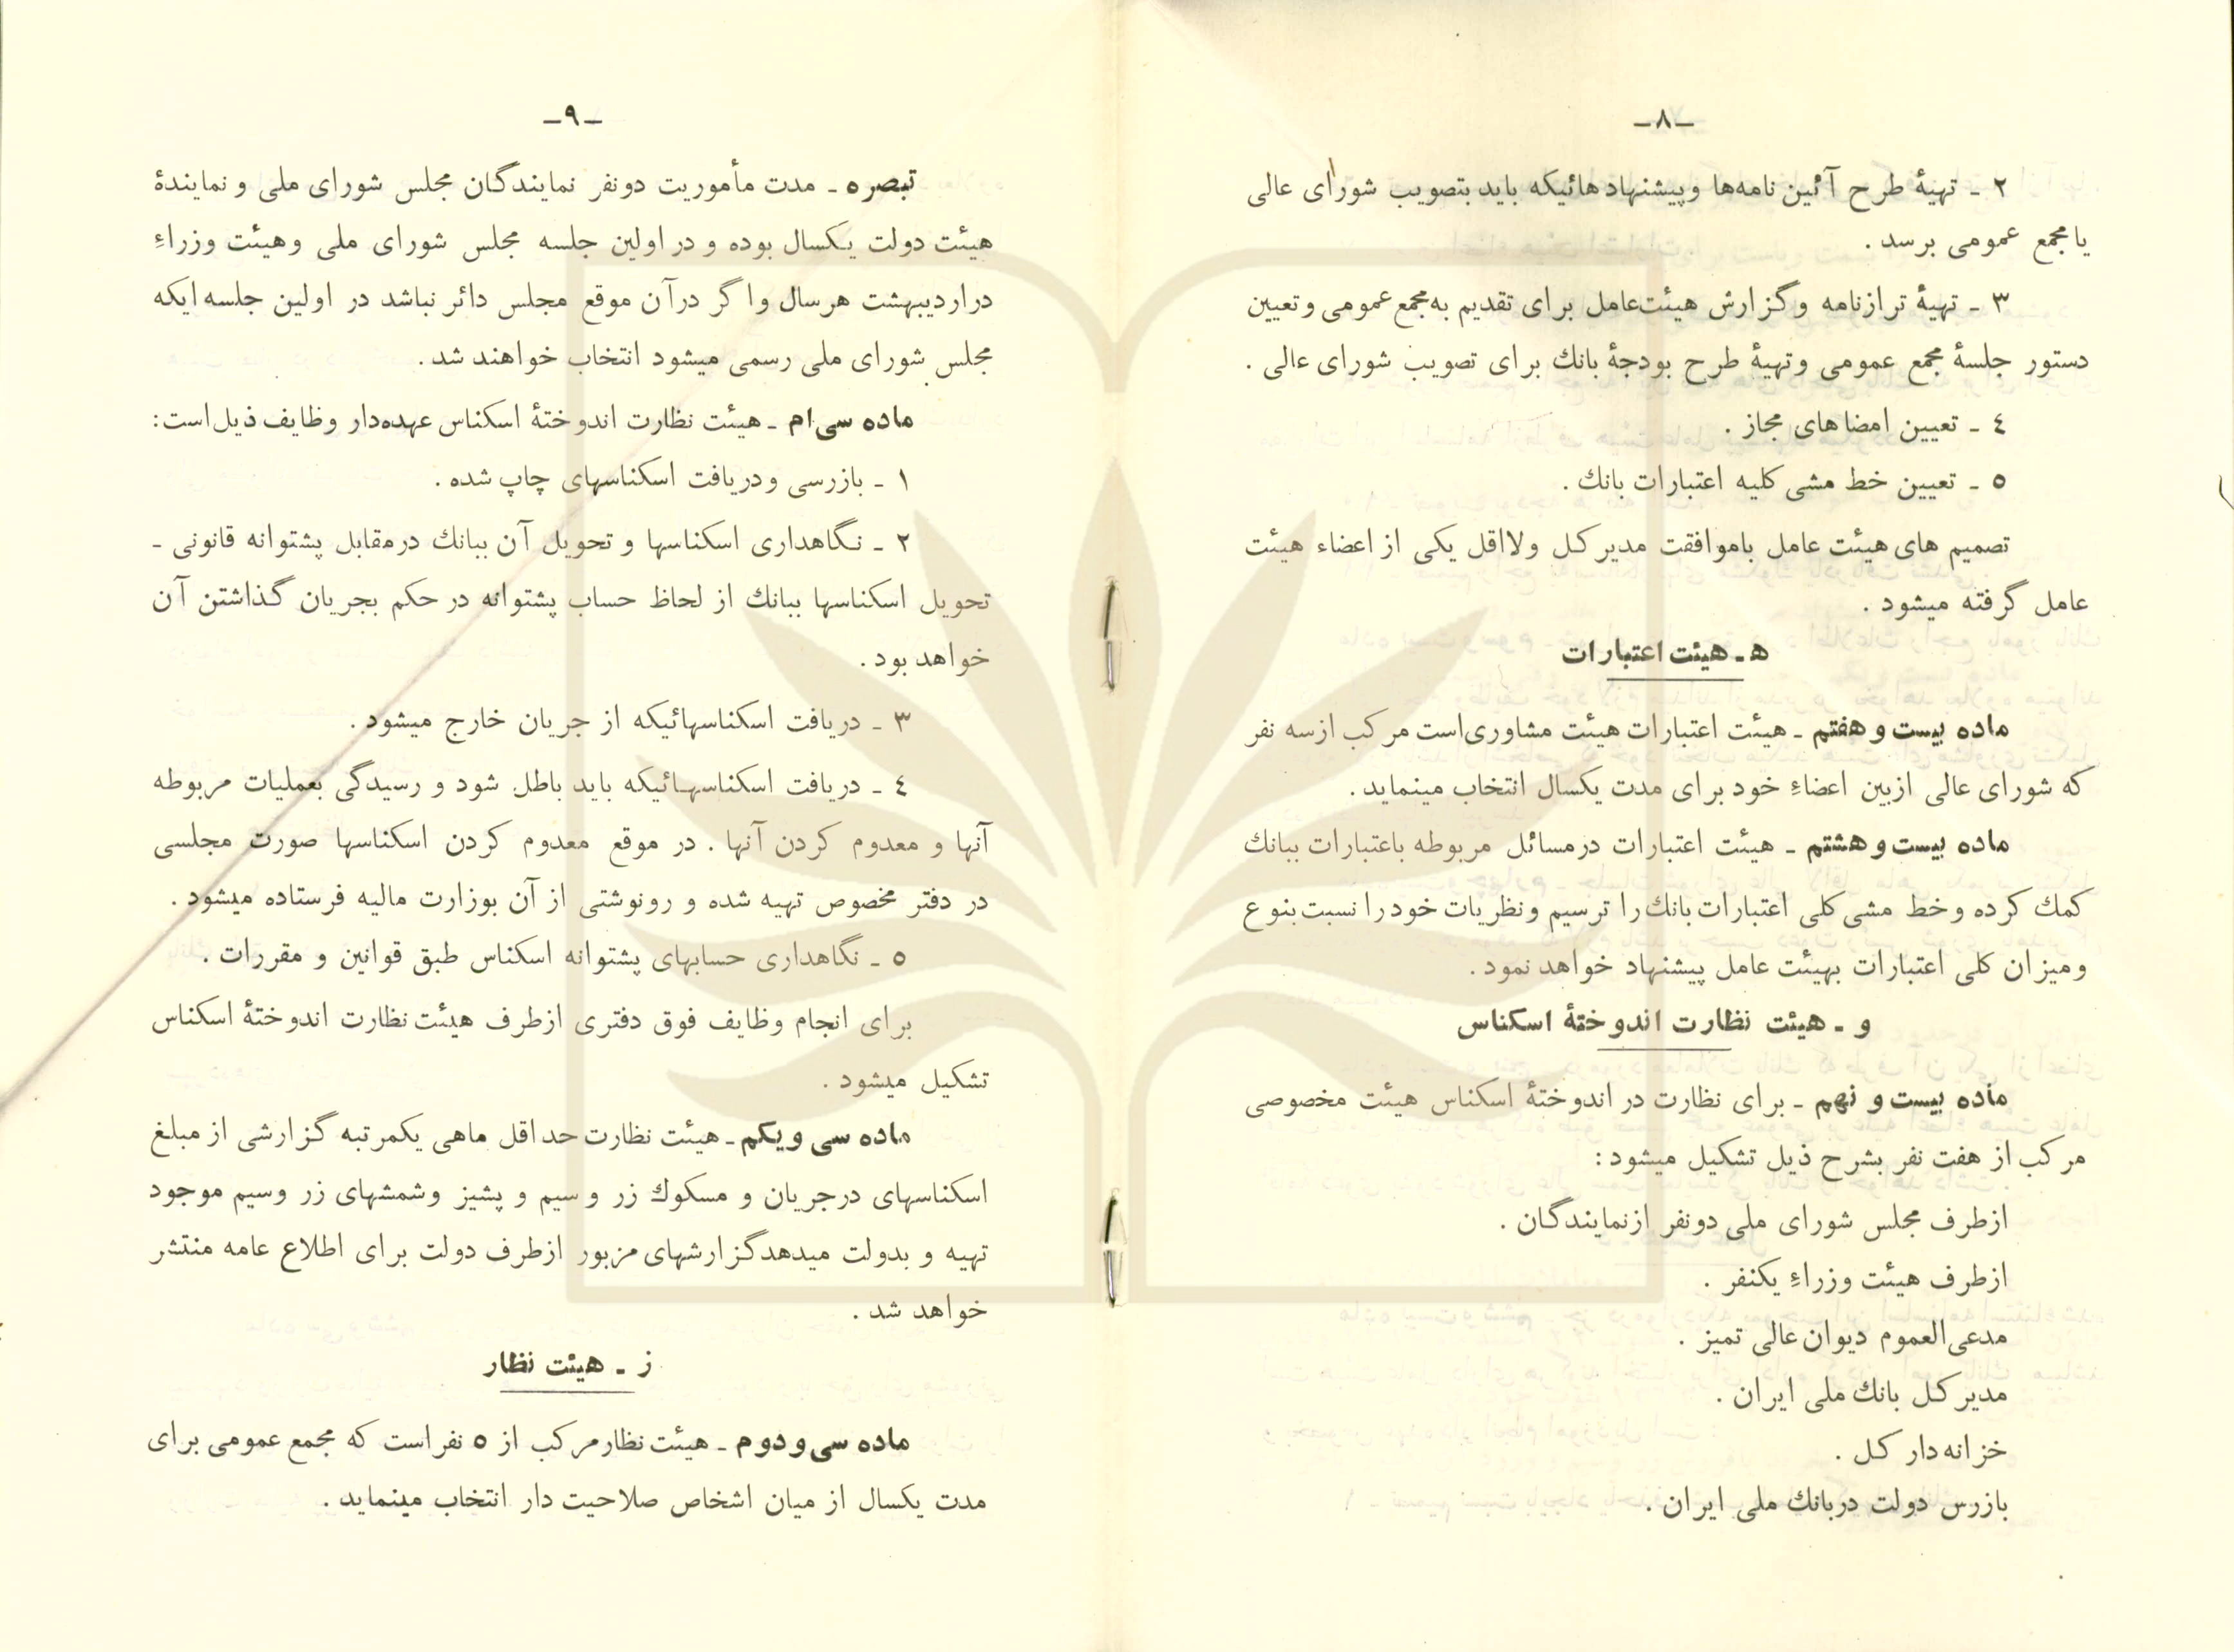 -۸-
۲ - تهیهٔ طرح آئین نامه‌ها وپیشنهادهائیکه باید بتصویب شورای عالی
یا مجمع عمومی برسد .
۳ - تهیهٔ ترازنامه وگزارش هیئت‌عامل برای تقدیم به‌مجمع عمومی وتعیین
دستور جلسهٔ مجمع عمومی وتهیهٔ طرح بودجهٔ بانك برای تصویب شورای عالی .
٤ - تعیین امضاهای مجاز .
٥ - تعیین خط مشی کلیه اعتبارات بانك .
تصمیم های هیئت عامل باموافقت مدیر کـل ولااقل یکی از اعضاء هیئت
عامل گرفته میشود .
ه - هیئت اعتبارات
ماده بیست و هفتم - هیئت اعتبارات هیئت مشاوری‌است مرکب ازسه نفر
که شورای عالی ازبین اعضاءِ خود برای مدت یکسال انتخاب مینماید .
ماده بیست و هشتم - هیئت اعتبارات درمسائل مربوطه باعتبارات ببانك
کمك کرده وخط مشی کلی اعتبارات بانك را ترسیم ونظریات خود را نسبت بنوع
ومیزان کلی اعتبارات بهیئت عامل پیشنهاد خواهد نمود .
و - هیئت نظارت اندوختهٔ اسکناس
ماده بیست و نهم - برای نظارت در اندوختهٔ اسکناس هیئت مخصوصی
مرکب از هفت نفر بشرح ذیل تشکیل میشود :
ازطرف مجلس شورای ملی دونفر ازنمایندگان .
ازطرف هیئت وزراءِ یکنفر .
مدعی‌العموم دیوان‌عالی تمیز .
مدیر کـل بانك ملی ایران .
خزانه‌دار کـل .
بازرس دولت دربانك ملی ایران .
-۹-
تبصره - مدت مأموریت دونفر نمایندگان مجلس شورای ملی و نمایندهٔ
هیئت دولت یـکسال بوده و در اولین جلسه مجلس شورای ملی وهیئت وزراءِ
دراردیبهشت هرسال واگر درآن موقع مجلس دائر نباشد در اولین جلسه‌ایکه
مجلس شورای ملی رسمی میشود انتخاب خواهند شد .
ماده سی‌ام - هیئت نظارت اندوختهٔ اسکناس عهده‌دار وظایف ذیل‌است :
۱ - بازرسی ودریافت اسکناسهای چاپ شده .
۲ - نـگاهداری اسکناسها و تحویل آن ببانك درمقابل پشتوانه قانونی -
تحویل اسکناسها ببانك از لحاظ حساب پشتوانه در حکم بجریان گـذاشتن آن
خواهد بود .
۳ - دریافت اسکناسهائیکه از جریان خارج میشود .
٤ - دریافت اسکناسهـائیکه باید باطل شود و رسیدگی بعملیات مربوطه
آنها و معدوم کردن آنها . در موقع معدوم کردن اسکناسها صورت مجلسی
در دفتر مخصوص تهیه شده و رونوشتی از آن بوزارت مالیه فرستاده میشود .
٥ - نگاهداری حسابهای پشتوانه اسکناس طبق قوانین و مقررات .
برای انجام وظایف فوق دفتری ازطرف هیئت نظارت اندوختهٔ اسکناس
تشکیل میشود .
ماده سی و یکم - هیئت نظارت حداقل ماهی یکمرتبه گزارشی از مبلغ
اسکناسهای درجریان و مسکوك زر و سیم و پشیز وشمشهای زر وسیم موجود
تهیه و بدولت میدهدگزارشهای مزبور ازطرف دولت برای اطلاع عامه منتشر
خواهد شد .
ز - هیئت نظار
ماده سی و دوم - هیئت نظارمرکب از ٥ نفراست که مجمع عمومی برای
مدت یکسال از میان اشخاص صلاحیت دار انتخاب مینماید .